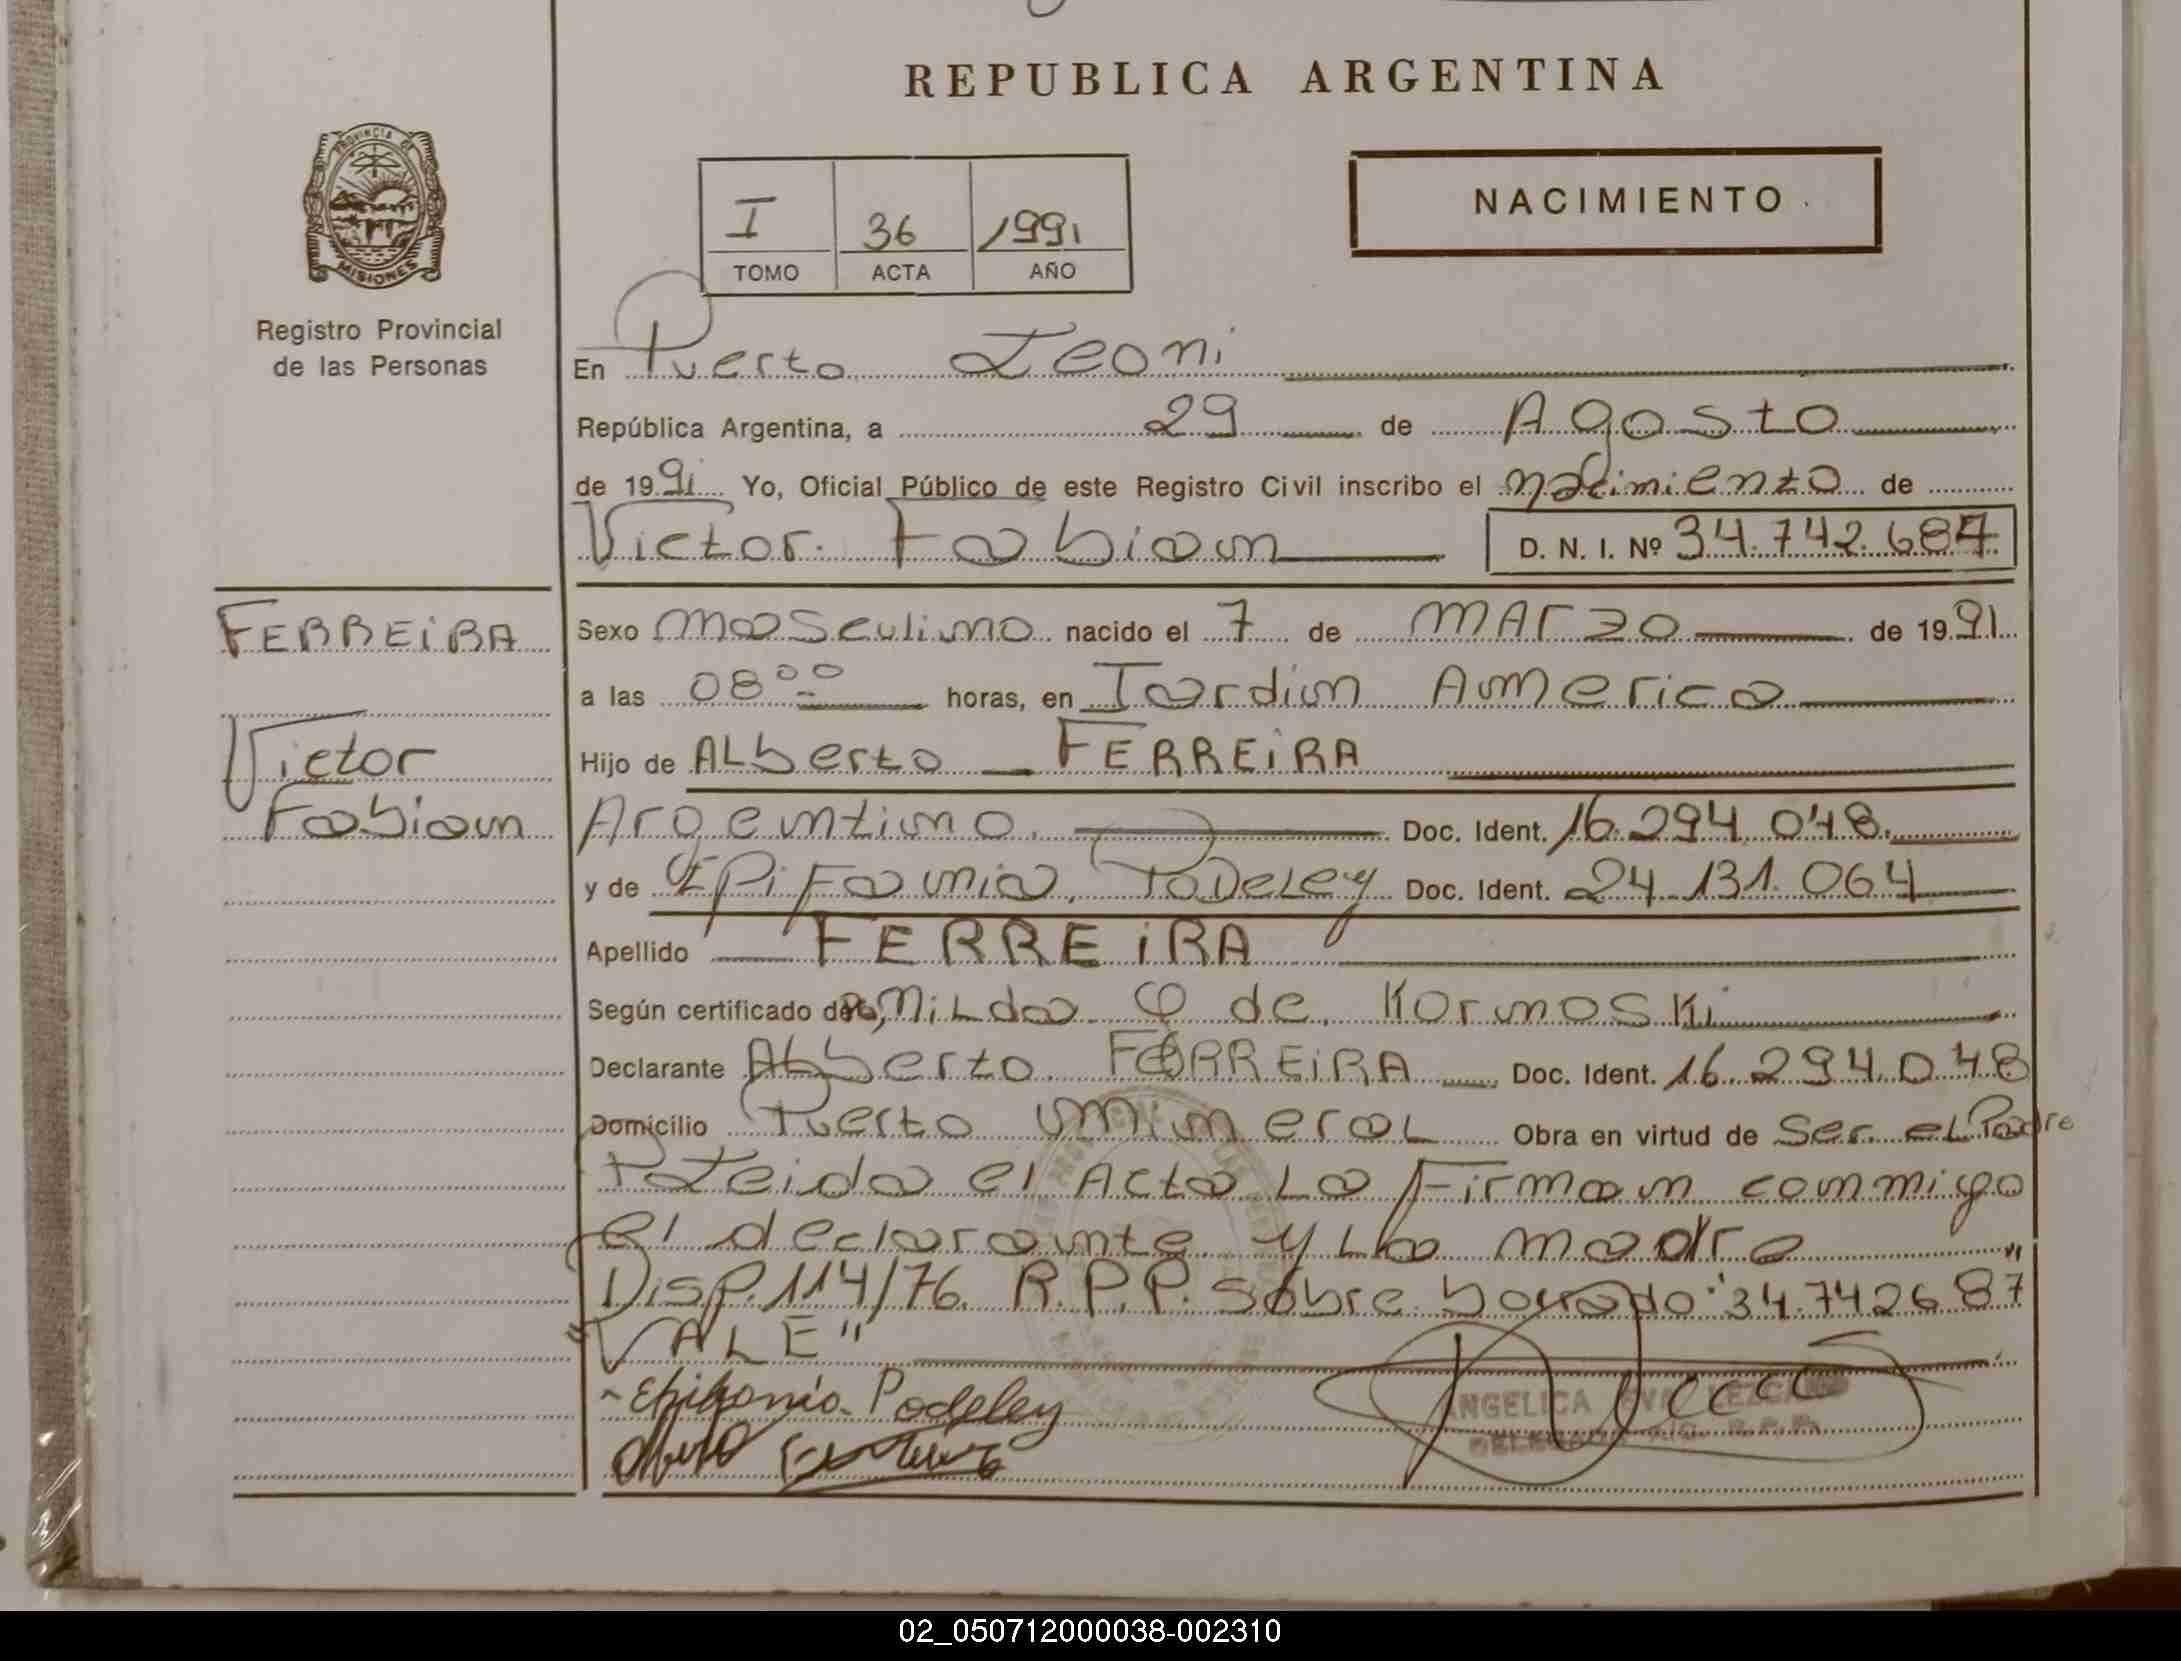 REPUBLICA ARGENTINA
PROVINCIA DE
MISIONES
Registro Provincial
de las Personas
I 36 1991
TOMO ACTA AÑO
NACIMIENTO
En Puerto Leoni
República Argentina, a 29 de Agosto
de 1991 Yo, Oficial Público de este Registro Civil inscribo el nacimiento de
Victor Fabian D. N. I. Nº 34.742.687
FERREIRA
Victor
Fabian
Sexo masculino nacido el 7 de Marzo de 1991
a las 08 00 horas, en Jardin America
Hijo de Alberto FERREIRA
Argentino. Doc. Ident. 16.294.048.
y de Epifania, Podeley Doc. Ident. 24.131.064
Apellido FERREIRA
Según certificado de Milda de Kornoski
Declarante Alberto FERREIRA Doc. Ident. 16.294.048
Domicilio Puerto mineral Obra en virtud de Ser el Padre
Leida el Acta La Firman conmigo
el declarante y La madre
Disp. 114/76. R.P.P. Sobre borrado: "34.742687"
"VALE"
Epifania Podeley
ANGELICA EVA LEZCANO
R.P.P.
02_050712000038-002310